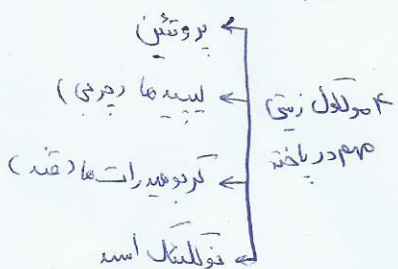 ۴ مولکول زیستی
مهم در یاخته
پروتئین
لیپید ها (چربی)
کربوهیدرات ها (قند)
نوکلئیک اسید